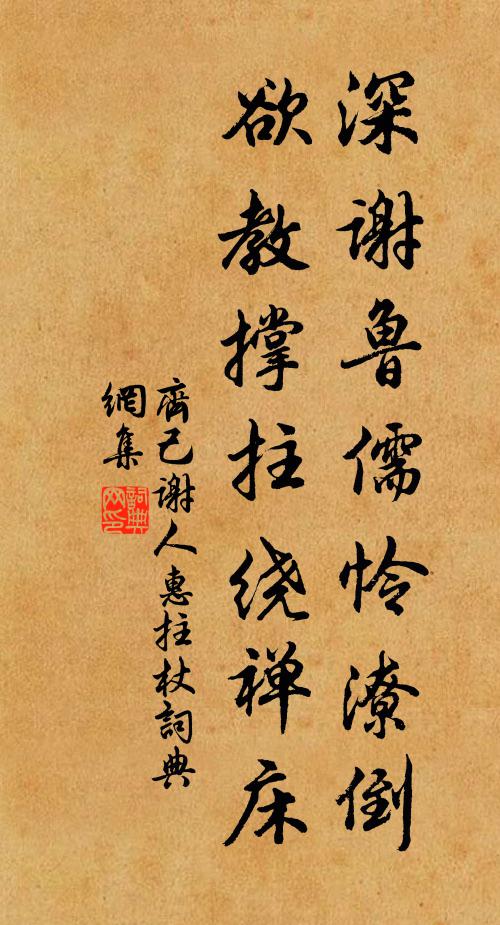 深谢鲁儒怜潦倒
欲教撑拄绕禅床
齊己谢人惠拄杖詞典
網集
詞典
网印